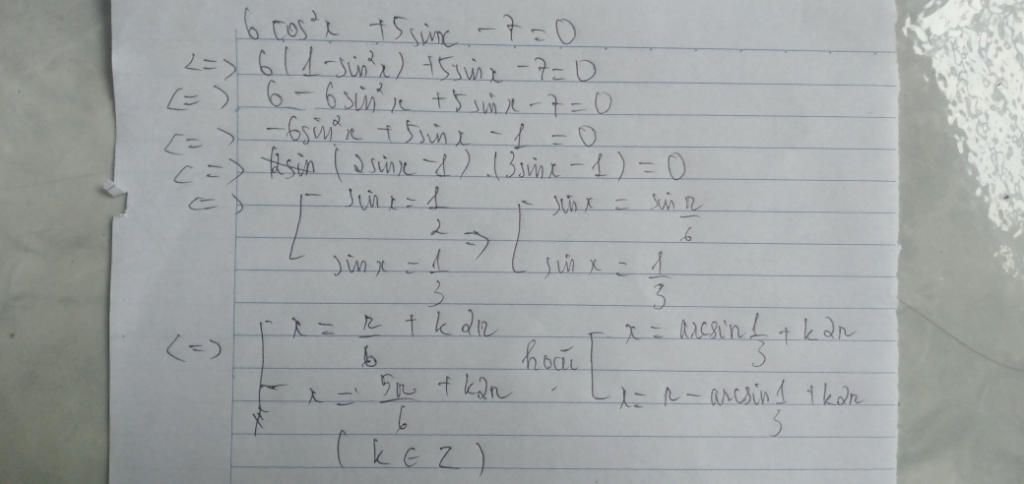 6 cos²x + 5 sinx - 7 = 0
<=> 6(1 - sin²x) + 5sinx - 7 = 0
<=> 6 - 6sin²x + 5sinx - 7 = 0
<=> -6sin²x + 5sinx - 1 = 0
<=> (2sinx - 1).(3sinx - 1) = 0
<=> [ sinx = 1/2 => [ sinx = sin π/6
sinx = 1/3 sinx = 1/3
<=> [ x = π/6 + k2π hoặc [ x = arcsin 1/3 + k2π
x = 5π/6 + k2π x = π - arcsin 1/3 + k2π
(k ∈ Z)